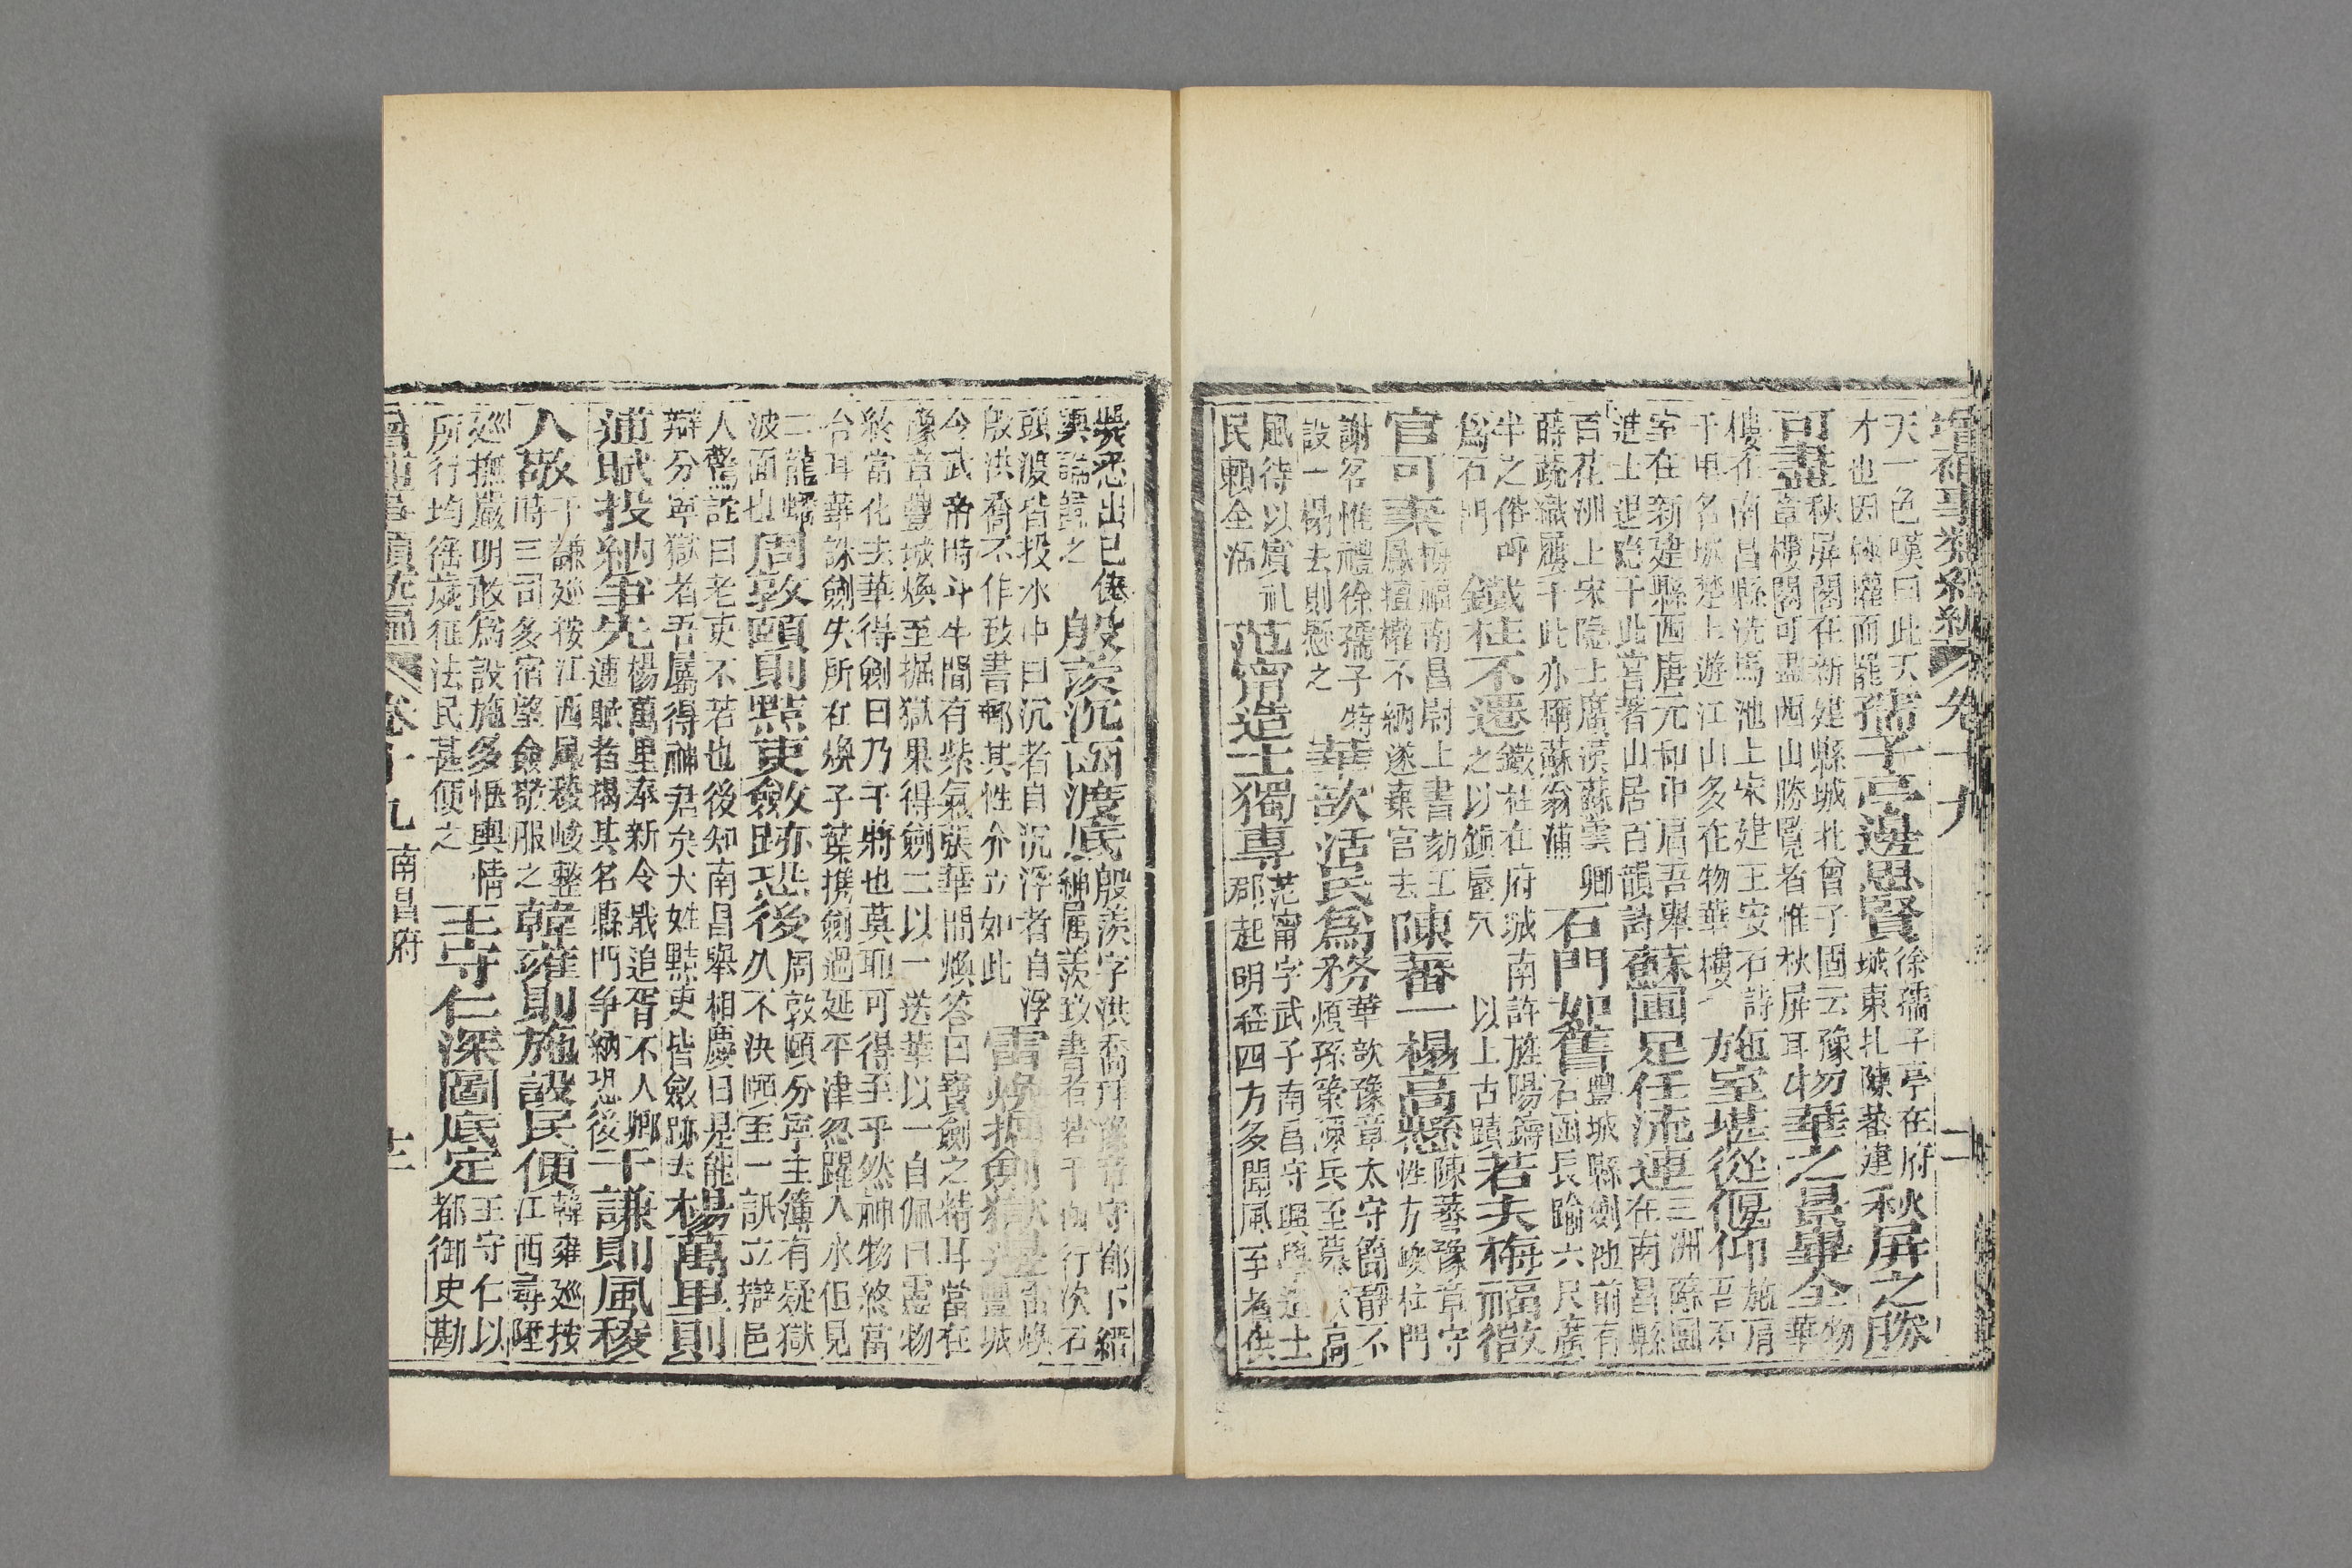 增補事類統編 卷十九
天一色嘆曰此天
才也因極懽而罷
孺子亭邊思賢
徐孺子亭在府
城東北陳蕃建
秋屏之勝
可盡
秋屏閣在新建縣城北曾子固云豫
章樓閣可盡西山勝覽者惟秋屏耳
物華之景畢全
物
華
樓在南昌縣洗馬池上宋建王安石詩
千里名城楚上遊江山多在物華樓
施室堪從偃仰
施肩
吾石
室在新建縣西唐元和中肩吾舉
進士退隱于此嘗著山居百韻詩
蘇圃足任流連
三洲
在南昌縣
百花洲上宋隱士廣漢蘇雲卿
蒔蔬織屨于此亦稱蘇翁蒲
石門如舊
豐城縣劍池前有
石函長踰六尺廣
半之俗呼
為石門
鐵柱不遷
鐵柱在府城南許旌陽鑄
之以鎮蜃穴
以上古蹟
若夫梅福微
官可棄
梅福南昌尉上書劾王
鳳擅權不納遂棄官去
陳蕃一榻高懸
陳蕃豫章守
性方峻杜門
謝客惟禮徐孺子特
設一榻去則懸之
華歆活民為務
華歆豫章太守簡靜不
煩孫策領兵至慕歆高
風待以賓礼
民賴全活
范甯造士獨專
范甯字武子南昌守興學造士
郡起明經四方多聞風至者供
悉出己俸
輿論歸之
殷羨沉函渡底
殷羨字洪喬拜豫章守都下縉
紳屬羨致書者若干函行次石
頭渡皆投水中曰沉者自沉浮者自浮
殷洪喬不作致書郵其性介立如此
雷煥掘劍獄邊
雷煥
豐城
令武帝時斗牛間有紫氣張華問煥答曰寶劍之精耳當在
豫章豐城煥至掘獄果得劍二以一送華以一自佩曰靈物
終當化去華得劍曰乃干將也莫耶可得至乎然神物終當
合耳華誅劍失所在煥子葉攜劍過延平津忽躍入水但見
二龍蟠
波面也
周敦頤則黠吏斂跡恐後
周敦頤分寧主簿有疑獄
久不決頤至一訊立辯邑
人驚詫曰老吏不若也後知南昌舉相慶曰是能
辯分寧獄者吾屬得神君矣大姓黠吏皆斂跡去
楊萬里則
逋賦投納爭先
楊萬里奉新令戢追胥不入鄉
逋賦者揭其名縣門爭納恐後
于謙則風稜
人敬
于謙巡按江西風稜峻整
時三司多宿望僉敬服之
韓雍則施設民便
韓雍巡按
江西尋陞
巡撫嚴明敢為設施多愜輿情
所行均徭歲征法民甚便之
王守仁深圖底定
王守仁以
都御史勘
增補事類統編 卷十九 南昌府 十二